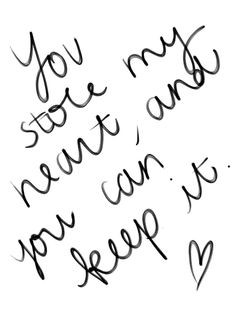 You
stole my
heart, and
you can
keep it.